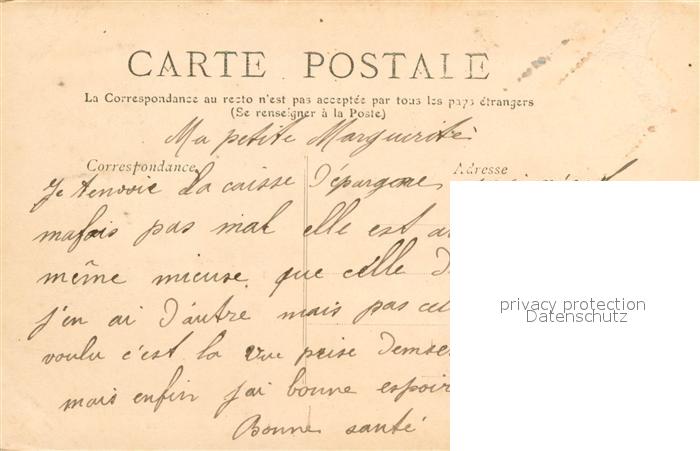 CARTE POSTALE
La Correspondance au recto n'est pas acceptée par tous les pays étrangers
(Se renseigner à la Poste)
Ma petite Marguerite
Correspondance
Adresse
Je tenvoie la caisse d'épargne
mafais pas mal elle est
même mieuse que celle
j'en ai d'autre mais pas
voulu c'est la vue prise
mais enfin j'ai bonne espoir
Bonne santé
privacy protection
Datenschutz